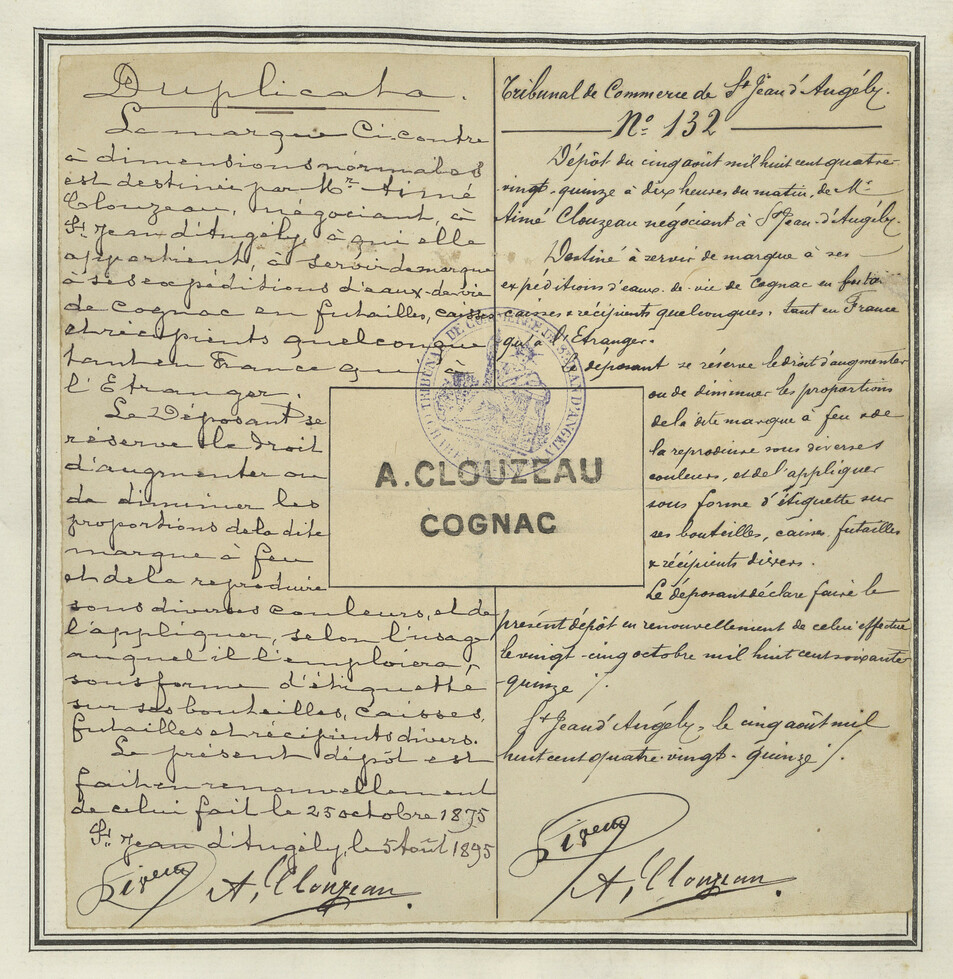 Duplicata.
La marque Ci-contre
à dimensions normales
est destinée par Mr Aimé
Clouzeau, négociant, à
St Jean d'Angély, à qui elle
appartient, à servir de marque
à ses expéditions d'eaux-de-vie
de Cognac en futailles, caisses
et récipients quelconque
tant en France qu'à
l'Etranger.
Le Déposant se
réserve le droit
d'augmenter ou
de diminuer les
proportions de la dite
marque à feu
et de la reproduire
sous diverses couleurs, et de
l'appliquer, selon l'usage
auquel il l'emploiera,
sous forme d'étiquette
sur ses bouteilles, caisses,
futailles et récipients divers.
Le présent dépôt est
fait en renouvellement
de celui fait le 25 octobre 1875
St Jean d'Angély, le 5 Août 1895
A. Clouzeau
Tribunal de Commerce de St Jean d'Angély.
No 132
Dépôt du cinq août mil huit cent quatre
vingt-quinze à dix heures du matin, de Mr
Aimé Clouzeau négociant à St Jean-d'Angély.
Destiné à servir de marque à ses
expéditions d'eaux-de-vie de Cognac en
caisses & récipients quelconques, tant en France
qu'à l'Etranger.
déposant se réserve le droit d'augmenter
ou de diminuer les proportions
de la dite marque à feu & de
la reproduire sous diverses
couleurs, et de l'appliquer
sous forme d'étiquette sur
ses bouteilles, caisses, futailles
& récipients divers.
Le déposant déclare faire le
présent dépôt en renouvellement de celui effectué
le vingt-cinq octobre mil huit cent soixante
quinze ./.
St Jean d'Angély, le cinq août mil
huit cent quatre-vingt-quinze ./.
A. Clouzeau
TRIBUNAL DE COMMERCE DE St JEAN D'ANGELY
A. CLOUZEAU
COGNAC